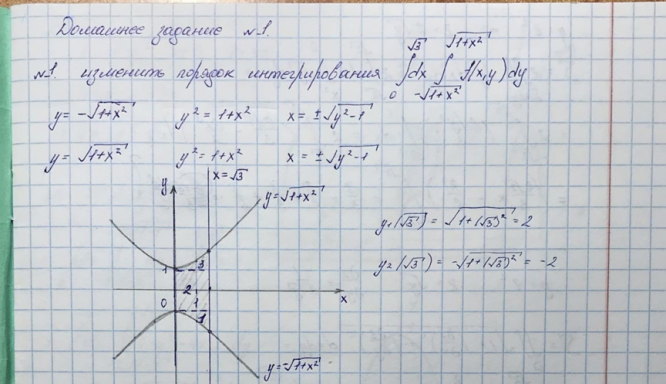 Домашнее задание №1.
№1. изменить порядок интегрирования ∫₀^√3 dx ∫_{-√(1+x²)}^{√(1+x²)} f(x,y) dy
y = -√(1+x²) y² = 1+x² x = ±√(y²-1)
y = √(1+x²) y² = 1+x² x = ±√(y²-1)
x = √3
y
y = √(1+x²)
y₁(√3) = √(1+(√3)²) = 2
y₂(√3) = -√(1+(√3)²) = -2
1 3
2
x
0 1
1
y = -√(1+x²)